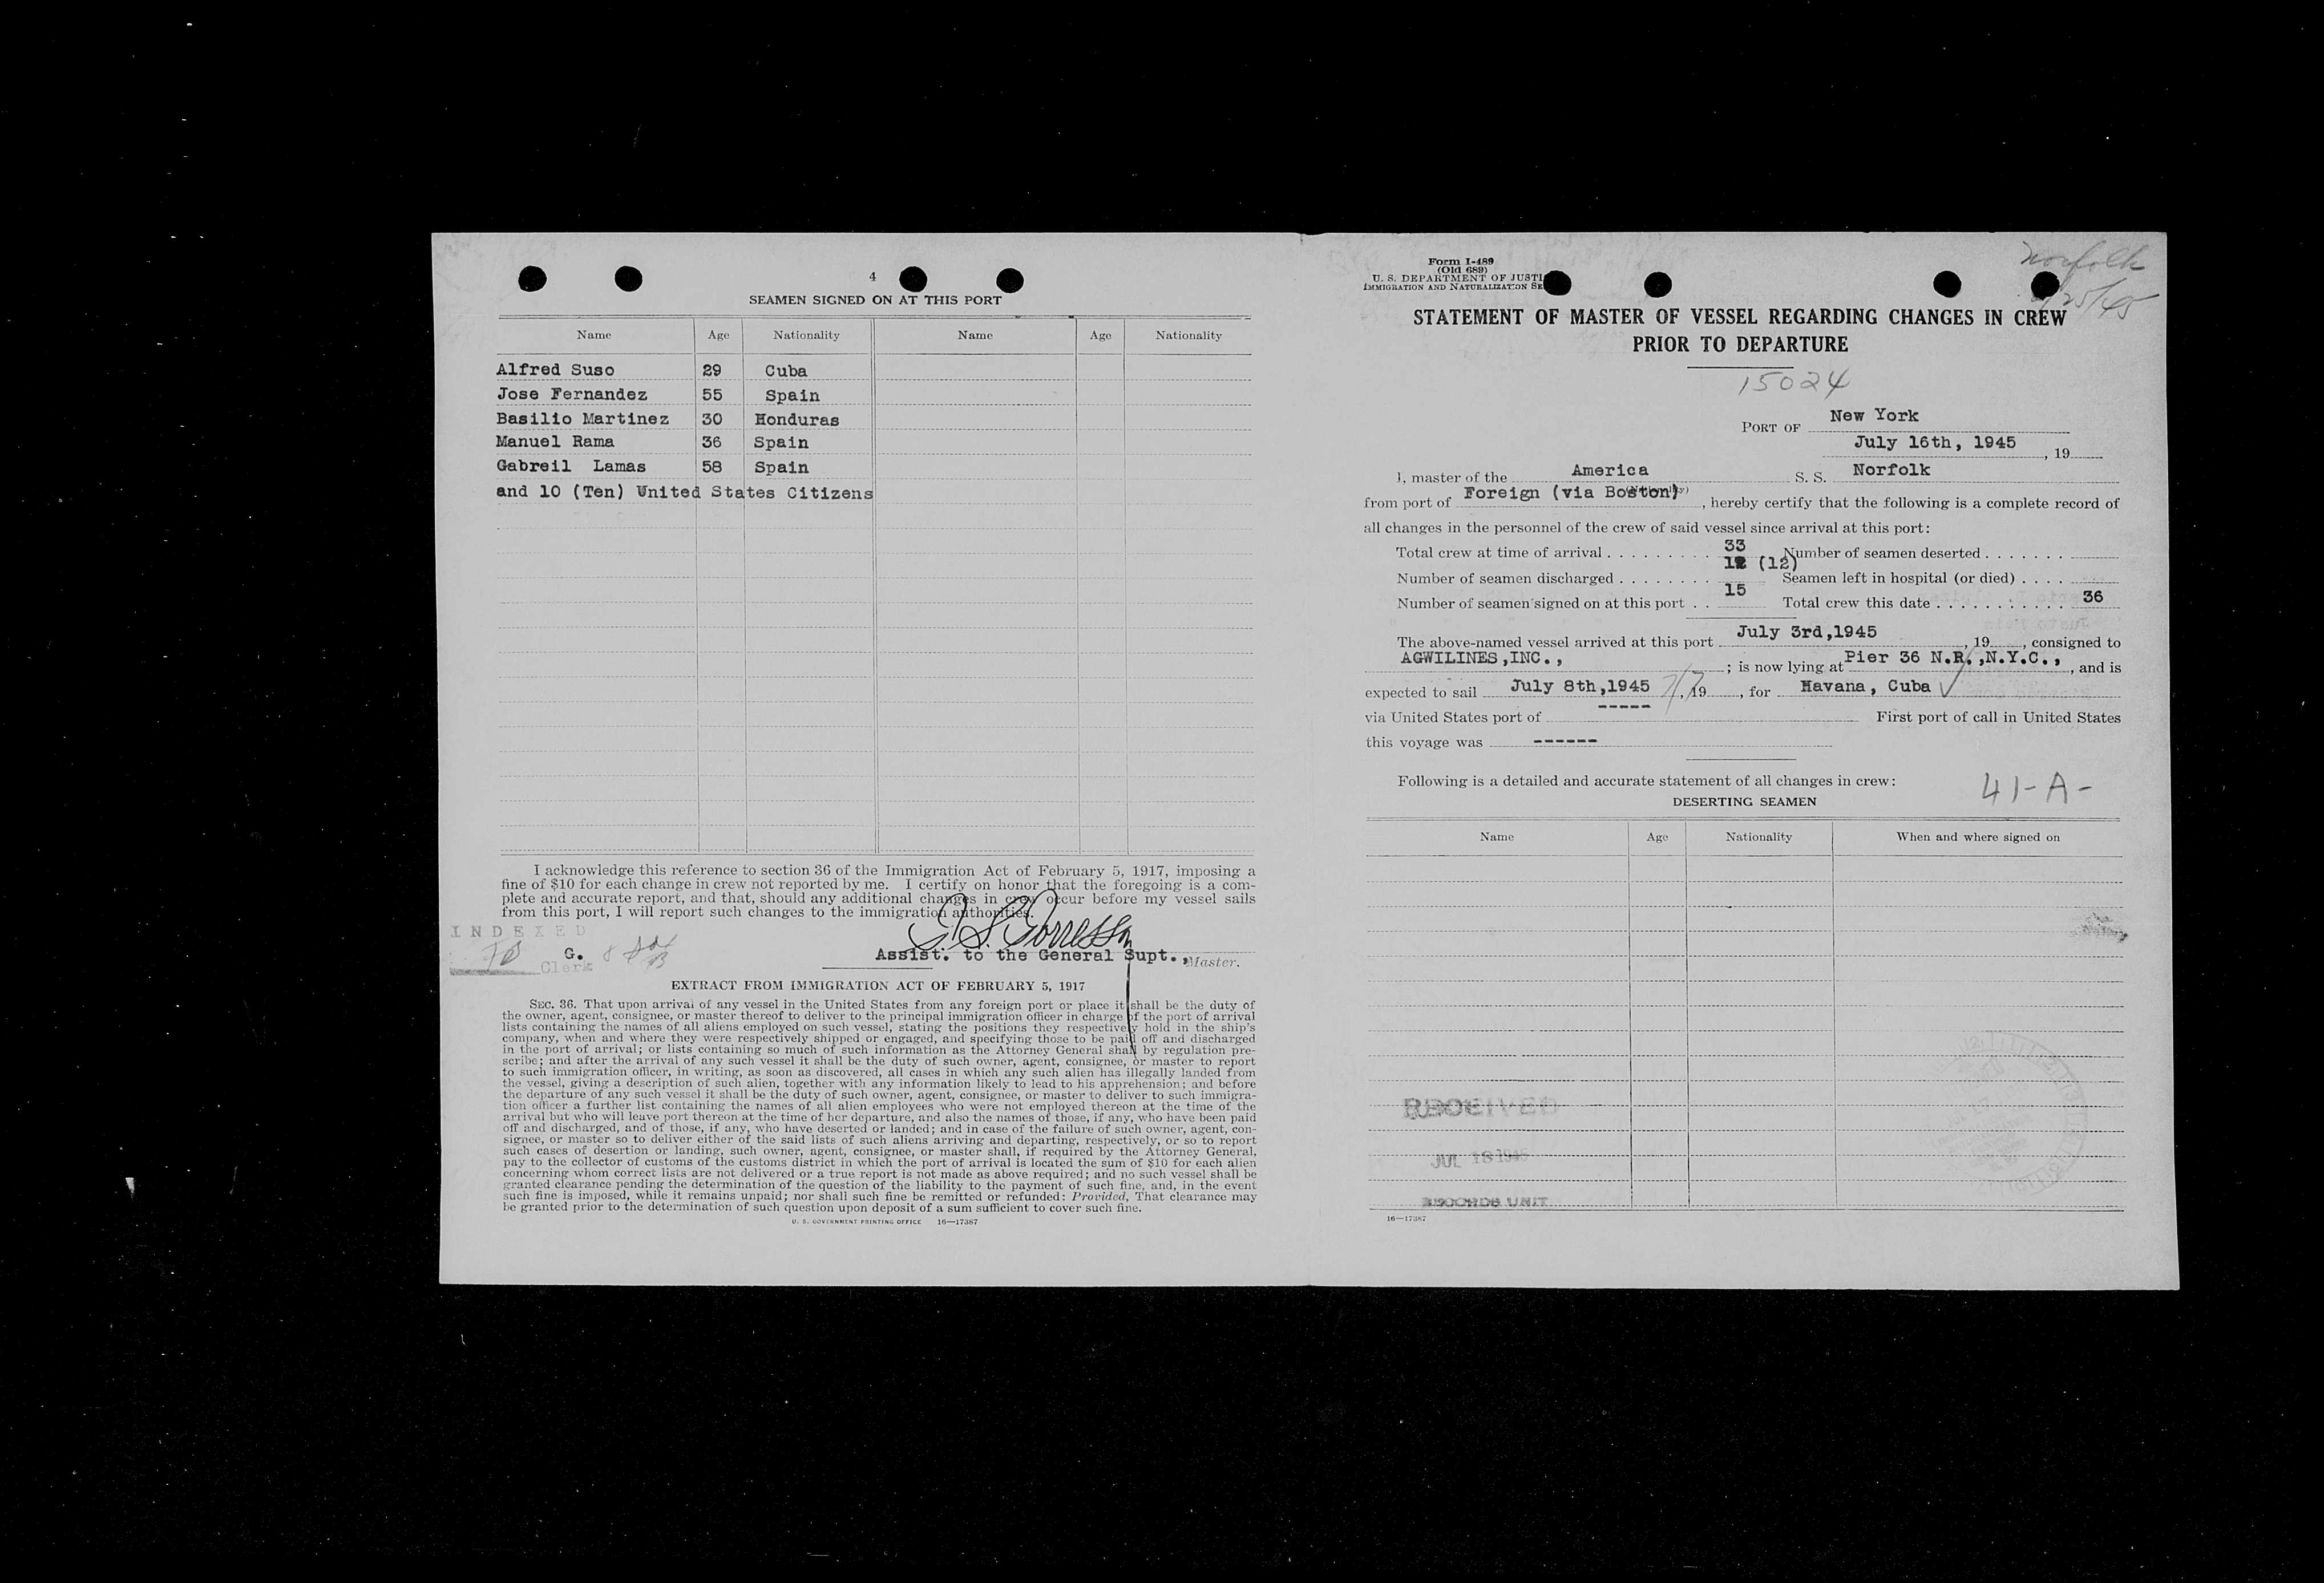 4
SEAMEN SIGNED ON AT THIS PORT
Name Age Nationality Name Age Nationality
Alfred Suso 29 Cuba
Jose Fernandez 55 Spain
Basilio Martinez 30 Honduras
Manuel Rama 36 Spain
Gabreil Lamas 58 Spain
and 10 (Ten) United States Citizens
I acknowledge this reference to section 36 of the Immigration Act of February 5, 1917, imposing a
fine of $10 for each change in crew not reported by me. I certify on honor that the foregoing is a com-
plete and accurate report, and that, should any additional changes in crew occur before my vessel sails
from this port, I will report such changes to the immigration authorities.
INDEXED
G.
Clerk
Assist. to the General Supt., Master.
EXTRACT FROM IMMIGRATION ACT OF FEBRUARY 5, 1917
SEC. 36. That upon arrival of any vessel in the United States from any foreign port or place it shall be the duty of
the owner, agent, consignee, or master thereof to deliver to the principal immigration officer in charge of the port of arrival
lists containing the names of all aliens employed on such vessel, stating the positions they respectively hold in the ship's
company, when and where they were respectively shipped or engaged, and specifying those to be paid off and discharged
in the port of arrival; or lists containing so much of such information as the Attorney General shall by regulation pre-
scribe; and after the arrival of any such vessel it shall be the duty of such owner, agent, consignee, or master to report
to such immigration officer, in writing, as soon as discovered, all cases in which any such alien has illegally landed from
the vessel, giving a description of such alien, together with any information likely to lead to his apprehension; and before
the departure of any such vessel it shall be the duty of such owner, agent, consignee, or master to deliver to such immigra-
tion officer a further list containing the names of all alien employees who were not employed thereon at the time of the
arrival but who will leave port thereon at the time of her departure, and also the names of those, if any, who have been paid
off and discharged, and of those, if any, who have deserted or landed; and in case of the failure of such owner, agent, con-
signee, or master so to deliver either of the said lists of such aliens arriving and departing, respectively, or so to report
such cases of desertion or landing, such owner, agent, consignee, or master shall, if required by the Attorney General,
pay to the collector of customs of the customs district in which the port of arrival is located the sum of $10 for each alien
concerning whom correct lists are not delivered or a true report is not made as above required; and no such vessel shall be
granted clearance pending the determination of the question of the liability to the payment of such fine, and, in the event
such fine is imposed, while it remains unpaid; nor shall such fine be remitted or refunded: Provided, That clearance may
be granted prior to the determination of such question upon deposit of a sum sufficient to cover such fine.
U. S. GOVERNMENT PRINTING OFFICE 16—17387
Form I-489
(Old 689)
U. S. DEPARTMENT OF JUSTI
IMMIGRATION AND NATURALIZATION SE
Norfolk
25/45
STATEMENT OF MASTER OF VESSEL REGARDING CHANGES IN CREW
PRIOR TO DEPARTURE
15024
PORT OF New York
July 16th, 1945, 19
I, master of the America S. S. Norfolk
from port of Foreign (via Boston), hereby certify that the following is a complete record of
all changes in the personnel of the crew of said vessel since arrival at this port:
Total crew at time of arrival 33 Number of seamen deserted
Number of seamen discharged 12 (12) Seamen left in hospital (or died)
Number of seamen signed on at this port 15 Total crew this date 36
The above-named vessel arrived at this port July 3rd,1945, 19, consigned to
AGWILINES,INC., ; is now lying at Pier 36 N.R.,N.Y.C., , and is
expected to sail July 8th,1945 7/7, 19, for Havana, Cuba ✓
via United States port of ----- First port of call in United States
this voyage was ------
Following is a detailed and accurate statement of all changes in crew:
41-A-
DESERTING SEAMEN
Name Age Nationality When and where signed on
RECEIVED
JUL 18 1945
RECORDS UNIT
16—17387